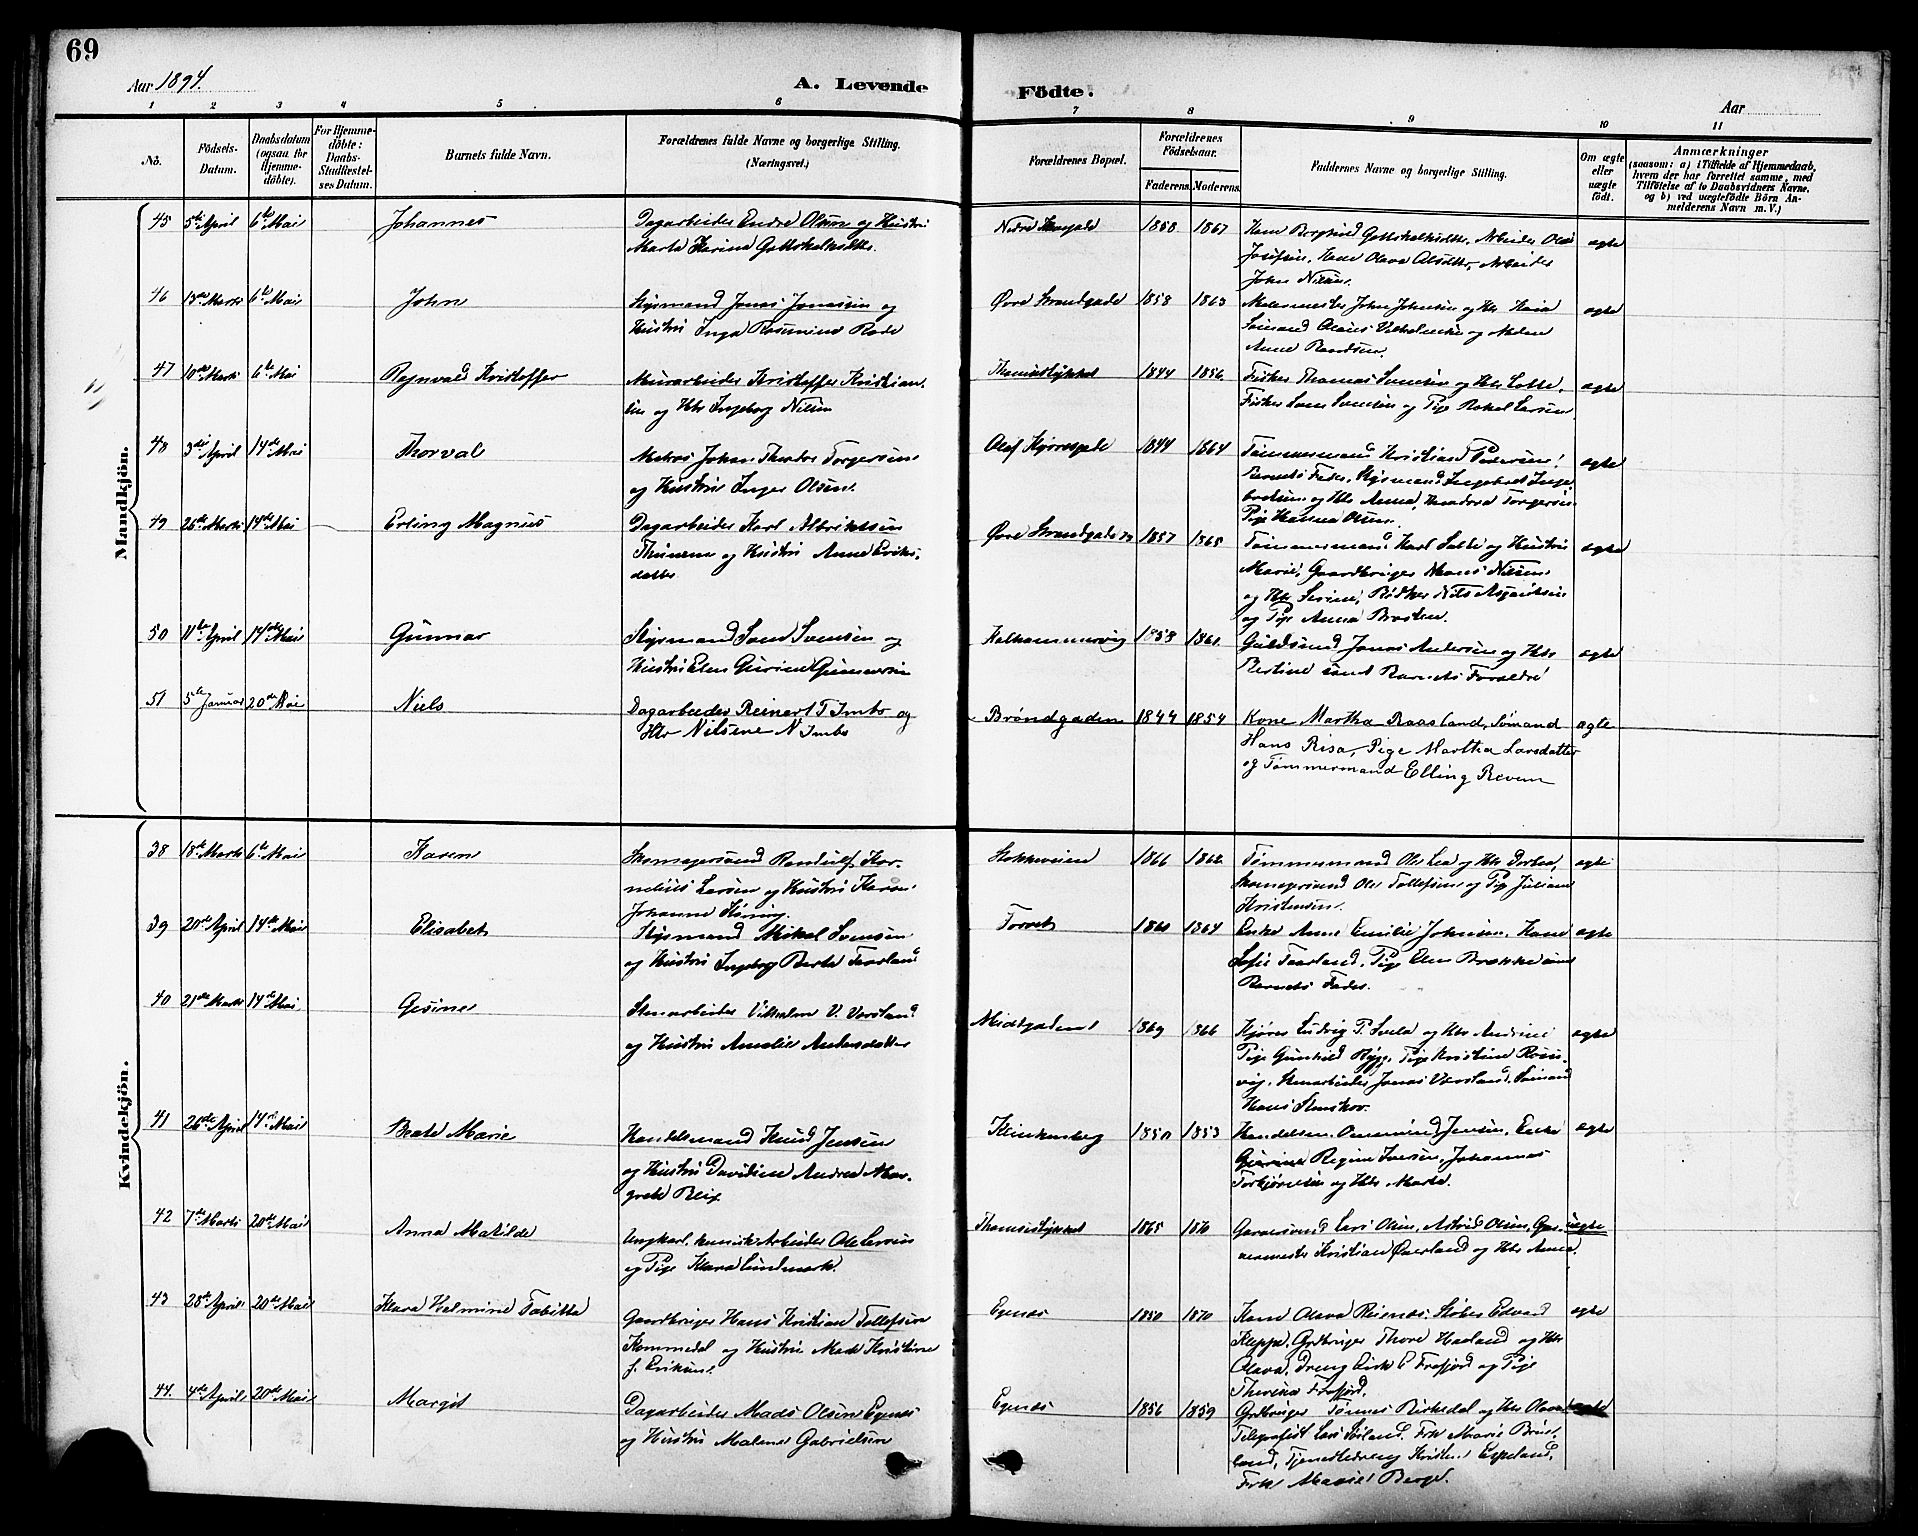 69
Aar 1894.
A. Levende
Födte.
Aar
1 2 3 4 5 6 7 8 9 10 11
No.
Födsels-Datum.
Daabsdatum (ogsaa for Hjemmedöbte).
For Hjemmedöbte: Daabs-Stadfæstelses Datum.
Barnets fulde Navn.
Forældrenes fulde Navne og borgerlige Stilling. (Næringsvei.)
Forældrenes Bopæl.
Forældrenes Födselsaar.
Faderens. Moderens.
Faddernes Navne og borgerlige Stilling.
Om ægte eller uægte födt.
Anmærkninger
(saasom: a) i Tilfælde af Hjemmedaab, hvem der har forrettet samme, med Tilföielse af to Daabsvidners Navne, og b) ved uægtefödte Börn Anmelderens Navn m. V.)
Mandkjön.
45 5te April 6te Mai Johannes Dagarbeider Endre Olsen og Hustru
Marta Karina Gottskalksdtr. Nedre 1858 1867 Olai
Josefsen, Kone Olava Olsdtr, Arbeider
John Nilsen. ægte
46 13de Marts 6te Mai John Styrmand Jonas Jonassen og
Hustru Inga Rasmine Rode Øvre Strandgade 1858 1863 Malermester John Johnsen og Htr
Sömand Olaus og
Anne Randsen. ægte
47 10de Marts 6te Mai Ragnvald Kristoffer Murarbeider Kristoffer Kristian-
sen og Htr Ingeborg Nilsen 1844 1856. Fisker Thomas Svensen og Htr Lotte,
Fisker Svensen og Pige Rakel Larsen ægte
48 3die April 14de Mai Thorval Matros Johan Theodor Torgersen
og Hustru Inger Olsen. Olaf Kyrresgade 1844 1864 Tømmermand Kristian Pedersen,
Barnets Fader, Styrmand Ingebret Inge-
bretsen og Htr Anna, Theodora Torgersen
Pige Hanna Olsen. ægte
49 26de Marts 14de Mai Erling Magnus Dagarbeider Karl Albriktsen
og Hustru Anne Eriks-
datter Øvre Strandgade 1857 1865 Tømmermand Karl og Hustru
Marie, Gaardbruger Hans Nilsen
og Htr Serine, Bødker Nils
og Pige Anna ægte
50 11te April 14de Mai Gunnar Styrmand Svend Svensen og
Hustru Elen Gurine Gunnarsen Kalhammervig 1858 1861 Guldsmed Jonas Andersen og Htr
Bertine samt Barnets Forældre ægte
51 5te Januar 20de Mai Niels Dagarbeider Reinert T Imbs og
Htr Nilsene N Imbs Brøndgaden 1844 1854 Kone Martha Raasland, Sømand
Hans Risa, Pige Martha Larsdatter
og Tømmermand Elling Revem ægte
Kvindekjön.
38 18de Marts 6te Mai Karen Skomagersvend Randulf Kor-
nelius Larsen og Hustru Karen
Johanne Stokkeveien 1866 1862 Tømmermand Ole Lea og Htr Dorthea,
Skomagersvend Ole Tollefsen og Pige Juliane
Kristensen. ægte
39 20de April 14de Mai Elisabet Styrmand Mikal Svensen
og Hustru Ingeborg Berta Faarland Torvet 1860 1864 Enke Anne Emilie Johnsen, Kone
Sofie Faarland, Pige Elen Brække samt
Barnets Fader. ægte
40 21de Marts 14de Mai Gesine Stenarbeider Vilhelm V. Vorsland
og Hustru Amalie Andersdatter Midtgaden 1869 1866 Ludvig P. Svela og Htr Andrine
Pige Gunhild Rygg, Pige Kristine Ros-
vig, Stenarbeider Jonas Vorsland, Sömand
Hans Stenskov. ægte
41 26de April 14de Mai Beate Marie Handelsmand Knud Jensen
og Hustru Davidine Andrea Mar-
grete Reix Klinkenberg 1850 1853 Handelsm. Jensen, Enke
Regine Iversen, Johannes
Torbjørnsen og Htr Marta. ægte
42 7de Marts 20de Mai Anna Matilde Ungkarl, Arbeider Ole Larsen
og Pige Klara Lindmark. 1865 1870 Garversvend Lars Olsen, Astrid Olsen, Gar-
vermester Kristian Øverland og Htr Anna. uægte
43 28de April 20de Mai Klara Halmine Tabitta Gaardbruger Hans Kristian Tollefsen
Kommedal og Hustru Kristine
f. Eriksen. Egenæs 1850 1870 Kone Olava Reienæs, Støber Edvard
Kleppe, Grdbruger Thore Haaland og Htr
Olava, Dreng Eirk E Frafjord og Pige
Therina Frafjord. ægte
44. 4de April 20de Mai Margit Dagarbeider Mads Olsen Egenæs
og Hustru Malene Gabrielsen Egenæs 1856 1859 Grdbruger Tønnes Birkedal og Htr Olava
Telegrafist Lars Sørland, Frk Marie
Tjenestedreng Kristen Espeland,
Frk Marie Berge. ægte